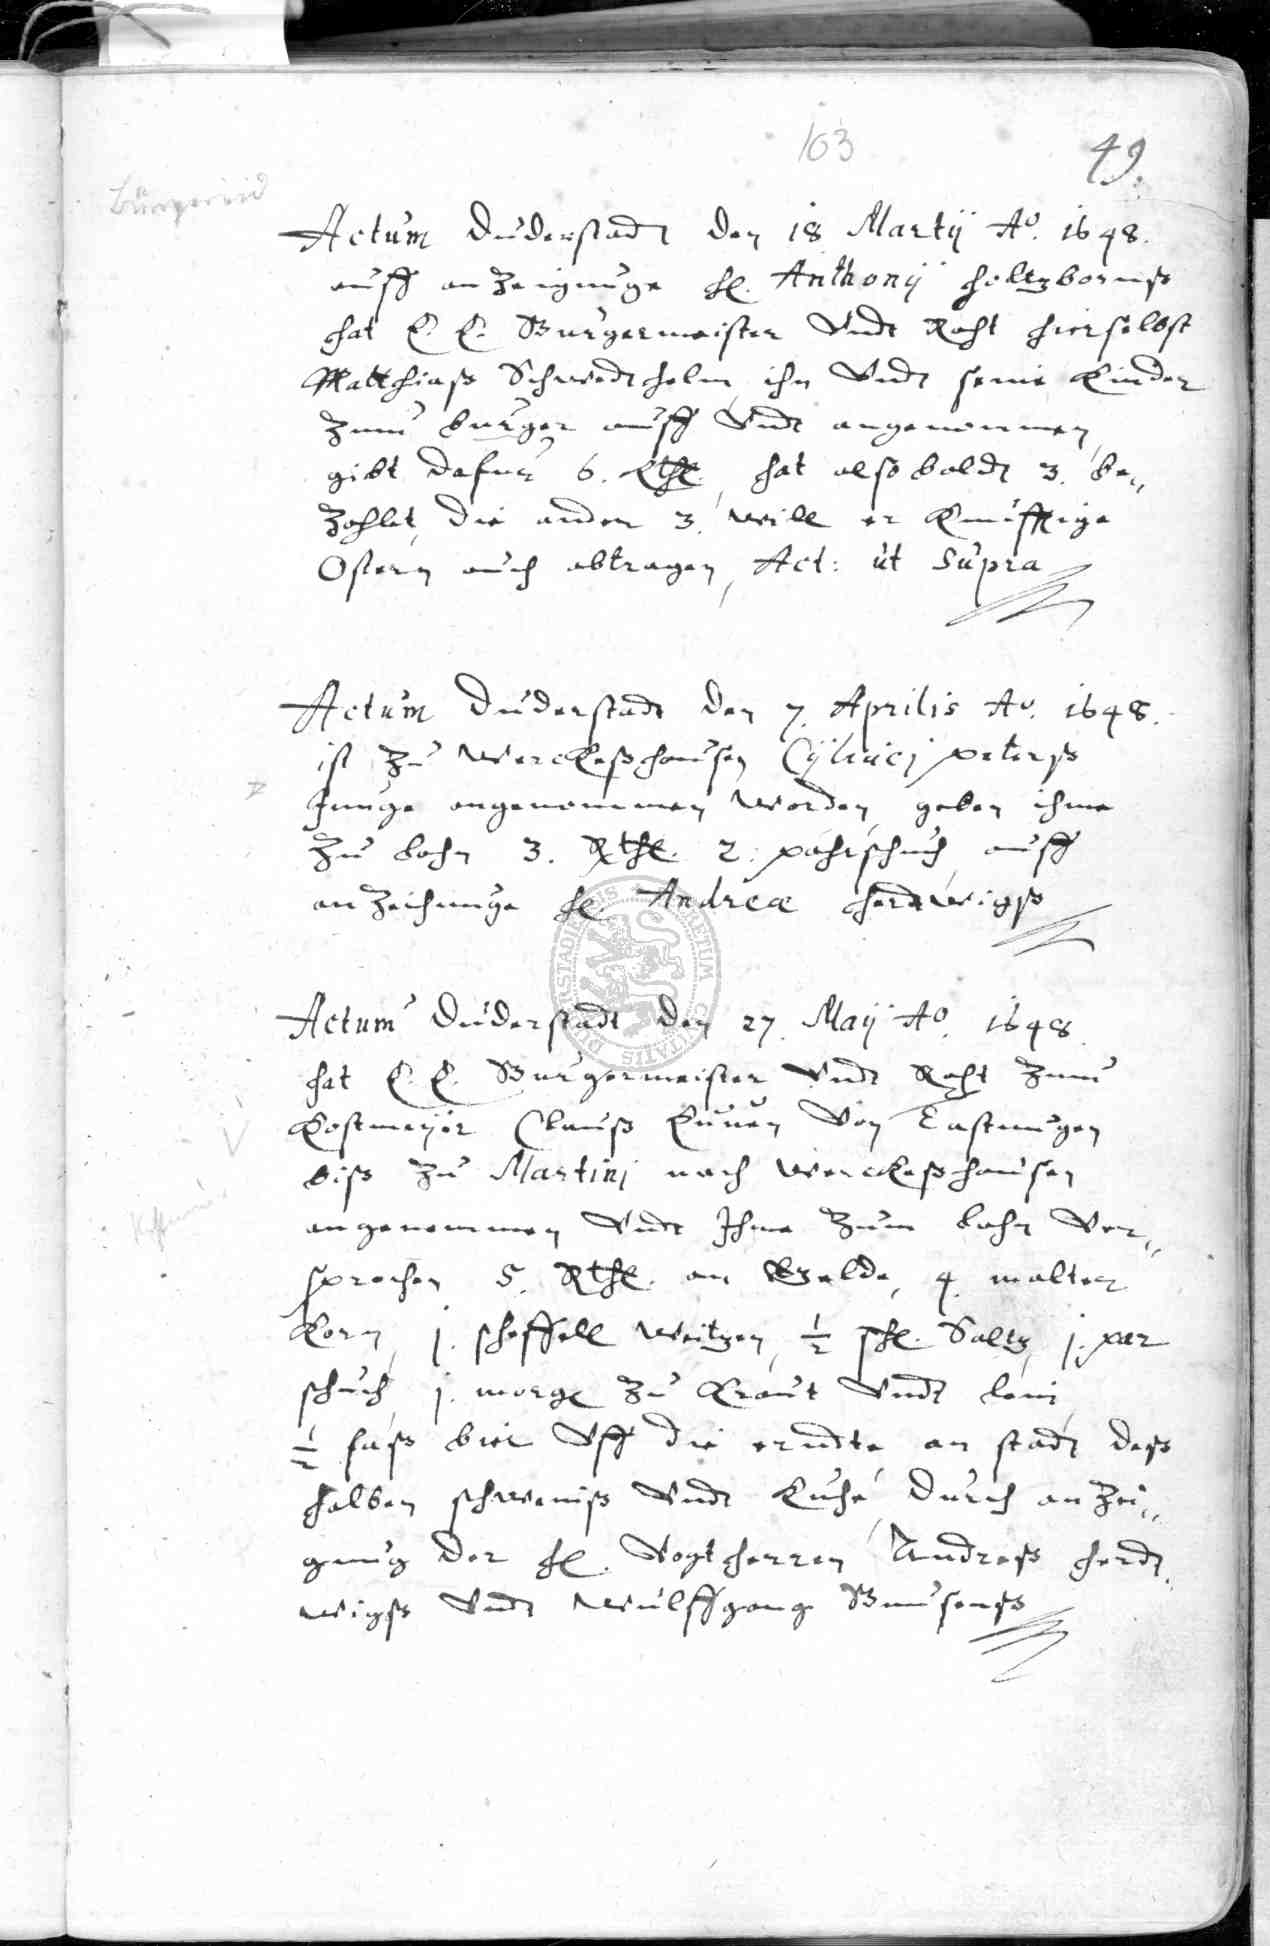 103
49.
Bürgereid
Actum Duderstadt den 18 Martij Ao. 1648.
auff anzeignuge H. Anthonij Holtzbornß
hat E. E. Burgermeister Undt Raht hierselbst
Matthiaß Schwedthelm ihn Undt seine Kinder
zum burger auff Undt angenommen,
gibt dafur 6. Rthl. hat alsobaldt 3. be„
zahlt, die ander 3. will er Kunfftige
Ostern auch abtragen, Act: ut Supra
Actum Duderstadt den 7. Aprilis Ao. 1648.
ist zu Werckeßhausen peterß
Junge angenommen worden, geben ihme
zu lohn 3. Rthl. 2. pahrschuch auff
anzeichnuge H. Andreæ Herdwigß
Actum Duderstadt den 27. Maij Ao. 1648.
hat E. E. Burgermeister Undt Raht zum
Clauß Von
biß zu Martinj nach Werckeßhausen
angenommen Undt Ihme zum lohn Ver„
sprochen 5. Rthl. an Gelde, 4. malter
Korn, j. scheffell Weitzen, ½ schl. Saltz, j. par
schuch, j. morge zu Kraut Undt lein
½ faß bier Uff die erndte an stadt deß
halben schweinß Undt Kuhe, durch anzei„
gnug der H. Vogtherren Andreß Herdt„
wigß Undt Wulffgang
DUDERSTADIENSIS SECRETUM CIVITATIS